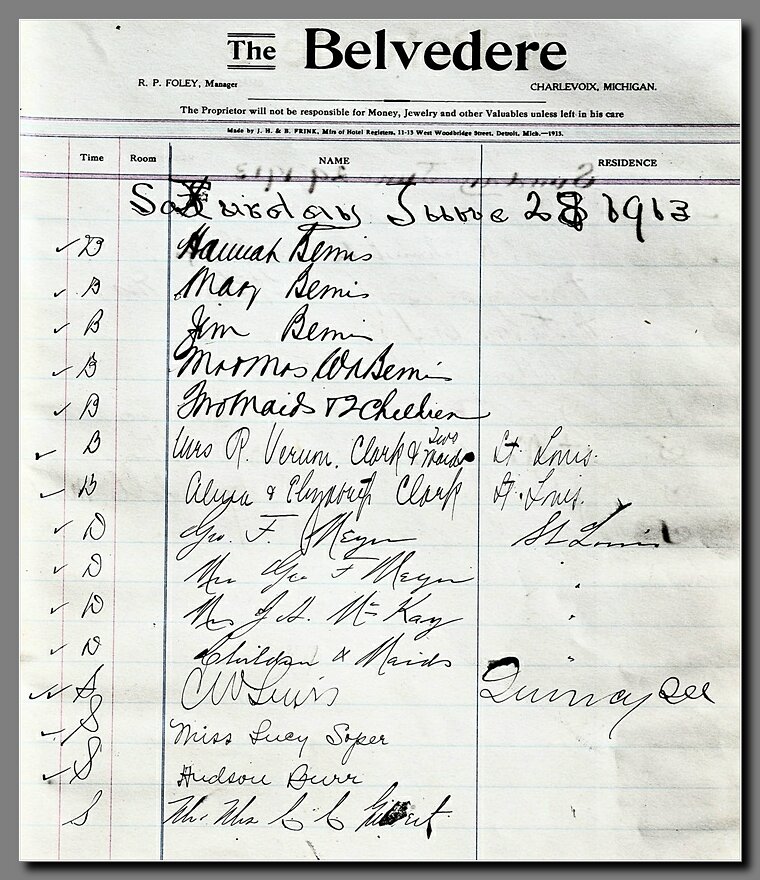 The Belvedere
R. P. FOLEY, Manager CHARLEVOIX, MICHIGAN.
The Proprietor will not be responsible for Money, Jewelry and other Valuables unless left in his care
Made by J. H. & B. FRINK, Mfrs of Hotel Registers, 11-13 West Woodbridge Street, Detroit, Mich.—1913.
Time Room NAME RESIDENCE
Saturday June 28 1913
✓ B Hannah Bemis
✓ B Mary Bemis
✓ B Jim Bemis
✓ B Mr & Mrs Bemis
✓ B Two Maids & 2 Children
✓ B Mrs R. Vernon Clark & Two Maids St. Louis.
✓ B & Elizabeth Clark St. Louis.
✓ D Geo. F. Meyer St Louis
✓ D Mrs Geo F Meyer "
✓ D Mrs J. A. McKay "
✓ D Children & Maids "
✓ ✓ S C W Lewis Quincy Ill
✓ S Miss Lucy Soper
✓ S Hudson Burr
S Mr. Mrs C C